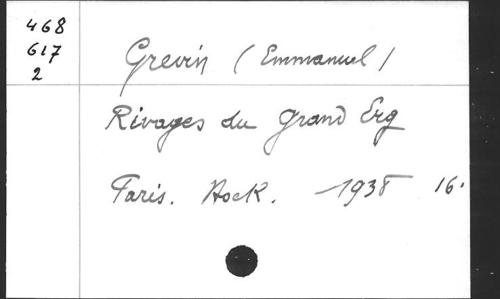 468
617
2
Grevin (Emmanuel)
Rivages du Grand Erg
Paris. Stock. 1938 16°